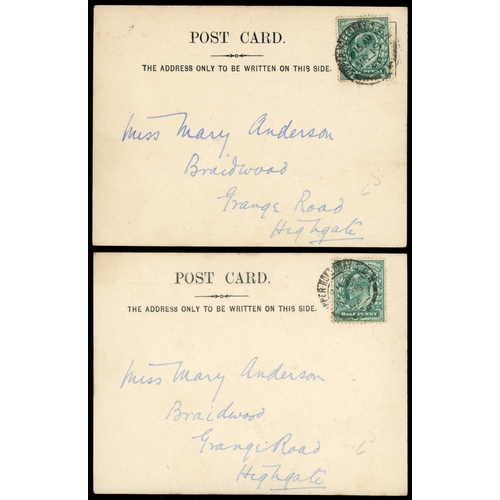 POST CARD.
THE ADDRESS ONLY TO BE WRITTEN ON THIS SIDE.
Miss Mary Anderson
Braidwood
Grange Road
Highgate
POST CARD.
THE ADDRESS ONLY TO BE WRITTEN ON THIS SIDE.
HALF PENNY
Miss Mary Anderson
Braidwood
Grange Road
Highgate